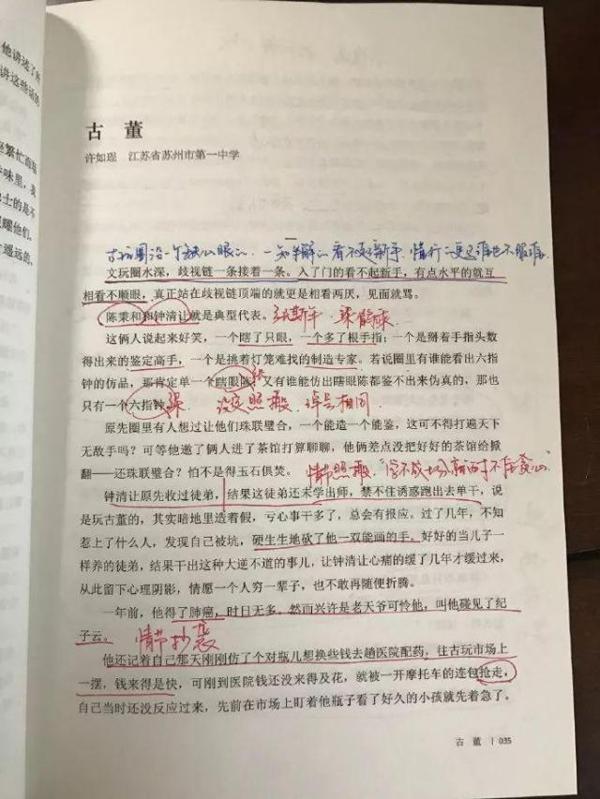 他讲述了
讲这些话的
繁忙
味里，我
士的是不
他们，
遥远的，
古 董
许如瑶 江苏省苏州市第一中学
一
文玩圈水深，歧视链一条接着一条。入了门的看不起新手，有点水平的就互
相看不顺眼，真正站在歧视链顶端的就更是相看两厌，见面就骂。
陈秉和和钟清让就是典型代表。
这俩人说起来好笑，一个瞎了只眼，一个多了根手指；一个是掰着手指头数
得出来的鉴定高手，一个是挑着灯笼难找的制造专家。若说圈里有谁能看出六指
钟的仿品，那肯定单一个瞎眼陈，又有谁能仿出瞎眼陈都鉴不出来伪真的，那也
只有一个六指钟。
设定照搬
相同
原先圈里有人想过让他们珠联璧合，一个能造一个能鉴，这可不得打遍天下
无敌手吗？可等他邀了俩人进了茶馆打算聊聊，他俩差点没把好好的茶馆给掀
翻——还珠联璧合？怕不是得玉石俱焚。
情节照搬
钟清让原先收过徒弟，结果这徒弟还未学出师，禁不住诱惑跑出去单干，说
是玩古董的，其实暗地里造着假，亏心事干多了，总会有报应。过了几年，不知
惹上了什么人，发现自己被坑，硬生生地砍了他一双能画的手。好好的当儿子一
样养的徒弟，结果干出这种大逆不道的事儿，让钟清让心痛的缓了几年才缓过来，
从此留下心理阴影，情愿一个人穷一辈子，也不敢再随便折腾。
一年前，他得了肺癌，时日无多。然而兴许是老天爷可怜他，叫他碰见了纪
子云。
情节抄袭
他还记着自己那天刚刚仿了个对瓶儿想换些钱去趟医院配药，往古玩市场上
一摆，钱来得是快，可刚到医院钱还没来得及花，就被一开摩托车的连包抢走，
自己当时还没反应过来，先前在市场上盯着他瓶子看了好久的小孩就先着急了。
古 董 | 035